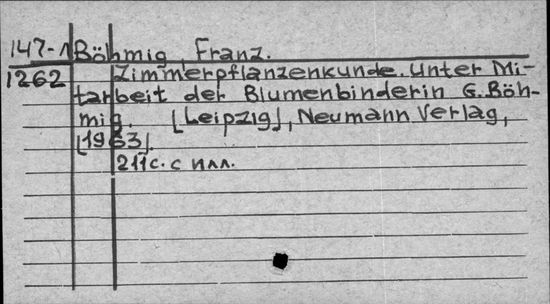 147-1 Böhmig, Franz.
1262 Zimmerpflanzenkunde. Unter Mi-
tarbeit der Blumenbinderin G. Böh-
mig. [Leipzig], Neumann Verlag,
[1963].
211 с. с илл.